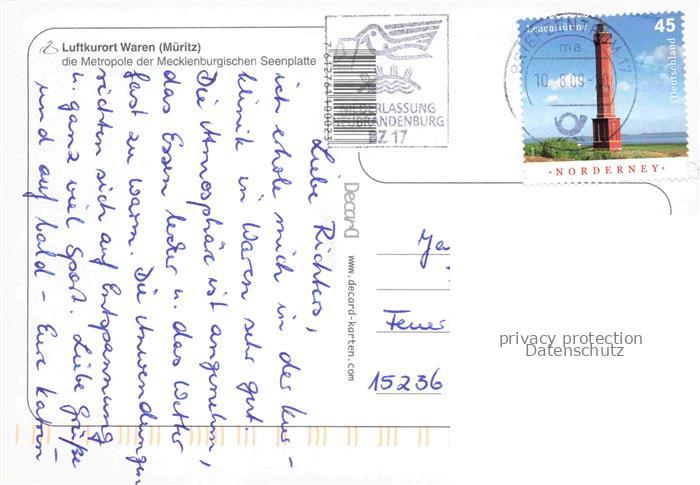 Luftkurort Waren (Müritz)
die Metropole der Mecklenburgischen Seenplatte
7612761100023
NIEDERLASSUNG
NEUBRANDENBURG
BZ 17
BRIEFZENTRUM 17
ma
10.-8.09
Leuchttürme
45
Deutschland
· NORDERNEY ·
Liebe Richters,
ich erhole mich in der Kur-
klinik in Waren sehr gut.
Die Atmosphäre ist angenehm,
das Essen lecker u. das Wetter
fast zu warm. Die Anwendungen
richten sich auf Entspannung
u. ganz viel Sport. Liebe Grüße
und auf bald - Eure Katrin
Decard
www.decard-karten.com
Ja
Feuer
15236
privacy protection
Datenschutz